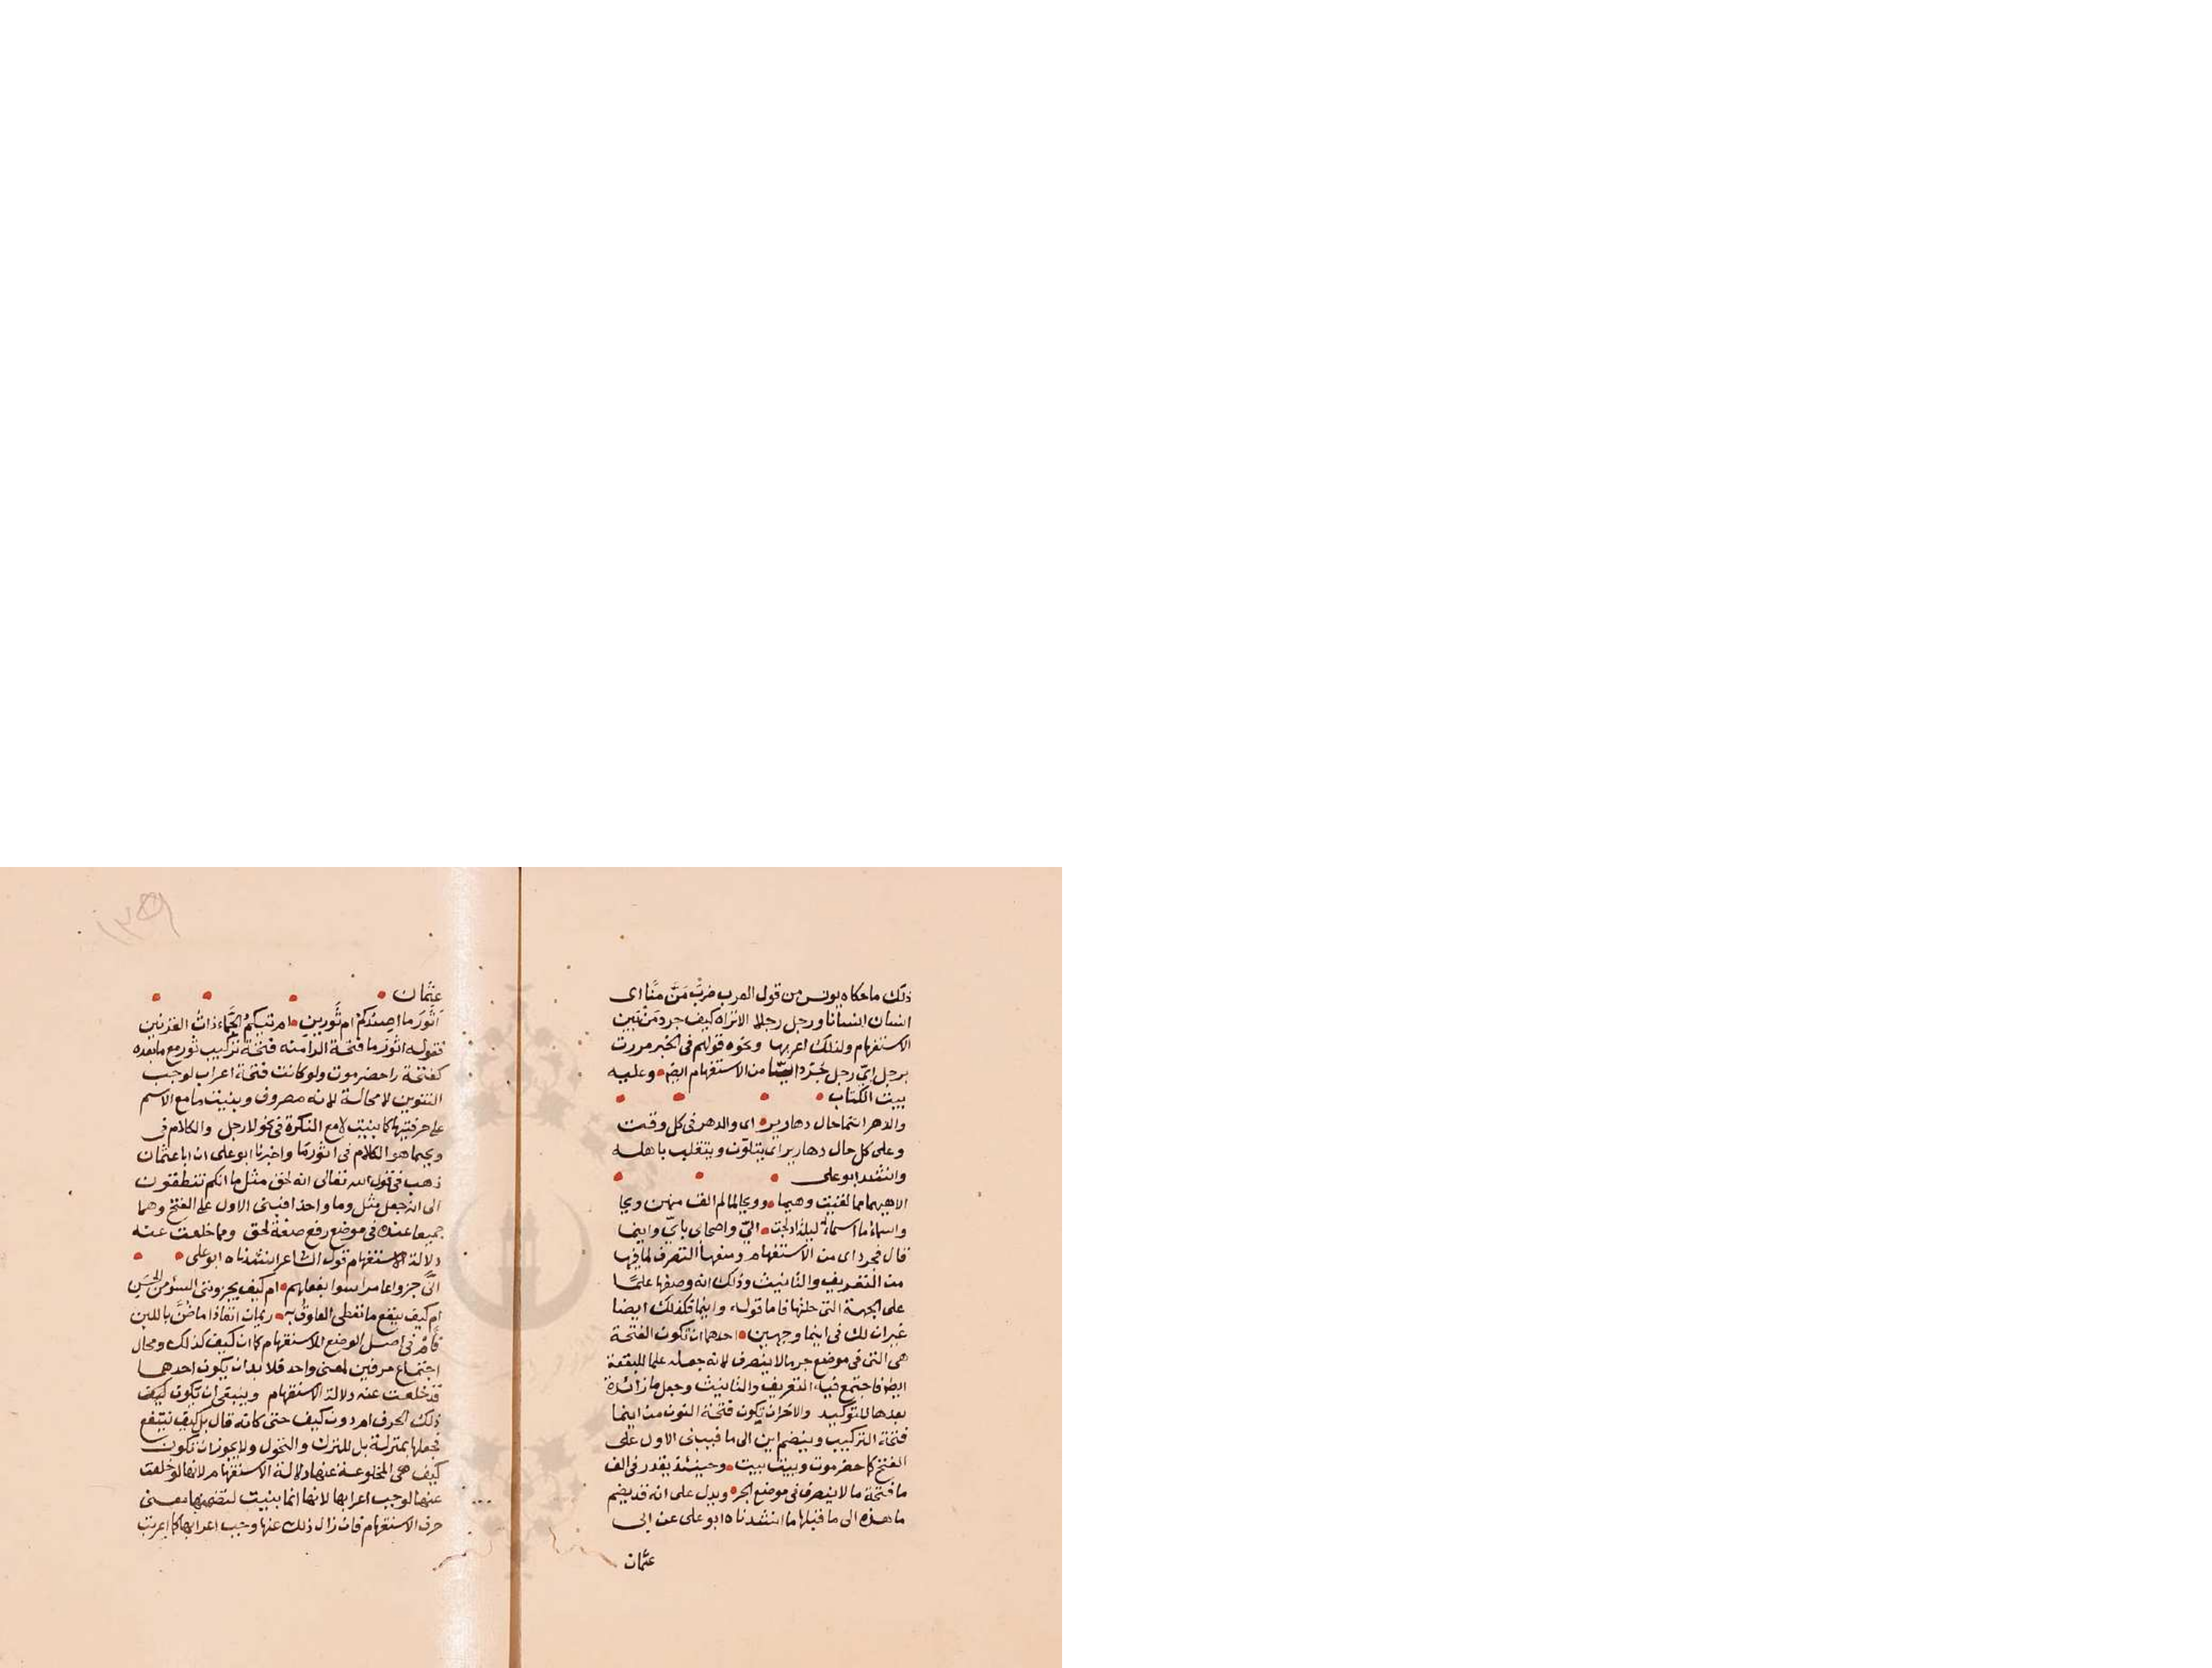 ذلك ما حكاه يونس من قول العرب ضرب مَن مَنًا اى
انسان انسانا ورجل رجلا الا تراه كيف جرد مَن من
الاستفهام ولذلك اعربها ونحوه قولهم فى الخبر مررت
برجل اىّ رجل فجرد ايّا من الاستفهام ايضا وعليه
بيت الكتاب
والدهر ايتما حال دهارير اى والدهر فى كل وقت
وعلى كل حال دهارير اى يتلوّن ويتقلب باهله
وانشد ابو على
الا هيما مما لقيت وهيما وويحا لمن لم الف منهن ويحا
واسماء ما اسماء ليلة ادلجت الىّ واصحابى باىّ واينما
قال فجرد اى من الاستفهام ومنعها التصرف لما فيها
من التعريف والتانيث وذلك انه وضعها علما
على الجهة التى حلتها فاما قوله واينما فكذلك ايضا
غير ان لك فى اينما وجهين احدهما ان تكون الفتحة
هى التى فى موضع جر ما لا ينصرف لانه جعله علما للبقعة
ايضا فاجتمع فيه التعريف والتانيث وجعل ما زائدة
بعدها للتوكيد والاخر ان تكون فتحة النون من اينما
فتحة التركيب وينضم اين الى ما فيبنى الاول على
الفتح كما حضرموت وبيت بيت وحينئذ يقدر فى الف
ما فتحة ما لا ينصرف فى موضع الجر ويدل على انه قد يضم
ما هذه الى ما قبلها ما انشدناه ابو على عن ابى
عثمان
عثمان
اثورَ ما اصيدكم ام ثورين ام تيكم الجماء ذات القرنين
فقوله اثور ما فتحة الرا منه فتحة تركيب ثور مع ما بعده
كفتحة را حضرموت ولو كانت فتحة اعراب لوجب
التنوين لا محالة لانه مصروف وبنيت ما مع الاسم
على حرفيتها كما بنيت لا مع النكرة فى نحو لا رجل والكلام فى
ويحما هو الكلام فى اثور ما واخبرنا ابو على ان ابا عثمان
ذهب فى قول الله تعالى انه لحق مثل ما انكم تنطقون
الى انه جعل مثل وما واحدا فبنى الاول على الفتح وهما
جميعا عنده فى موضع رفع صفة لحق ومما خلعت عنه
دلالة الاستفهام قول الشاعر انشدناه ابو على
انّى جزوا عامرا سوا بفعلهم ام كيف يجزوننى السوء من الحسن
ام كيف ينفع ما تعطى العلوق به رئمان انف اذا ما ضنّ باللبن
فأم فى اصل الوضع للاستفهام كما ان كيف كذلك ومحال
اجتماع حرفين لمعنى واحد فلا بد ان يكون احدهما
قد خلعت عنه دلالة الاستفهام وينبغى ان تكون
ذلك الحرف ام دون كيف حتى كانه قال بل كيف ينفع
فجعلها بمنزلة بل للترك والتحول ولا يجوز ان تكون
كيف هى المخلوعة عنها دلالة الاستفهام لانها لو خلعت
عنها لوجب اعرابها لانها انما بنيت لتضمنها معنى
حرف الاستفهام فان زال ذلك عنها وجب اعرابها كما اعربت